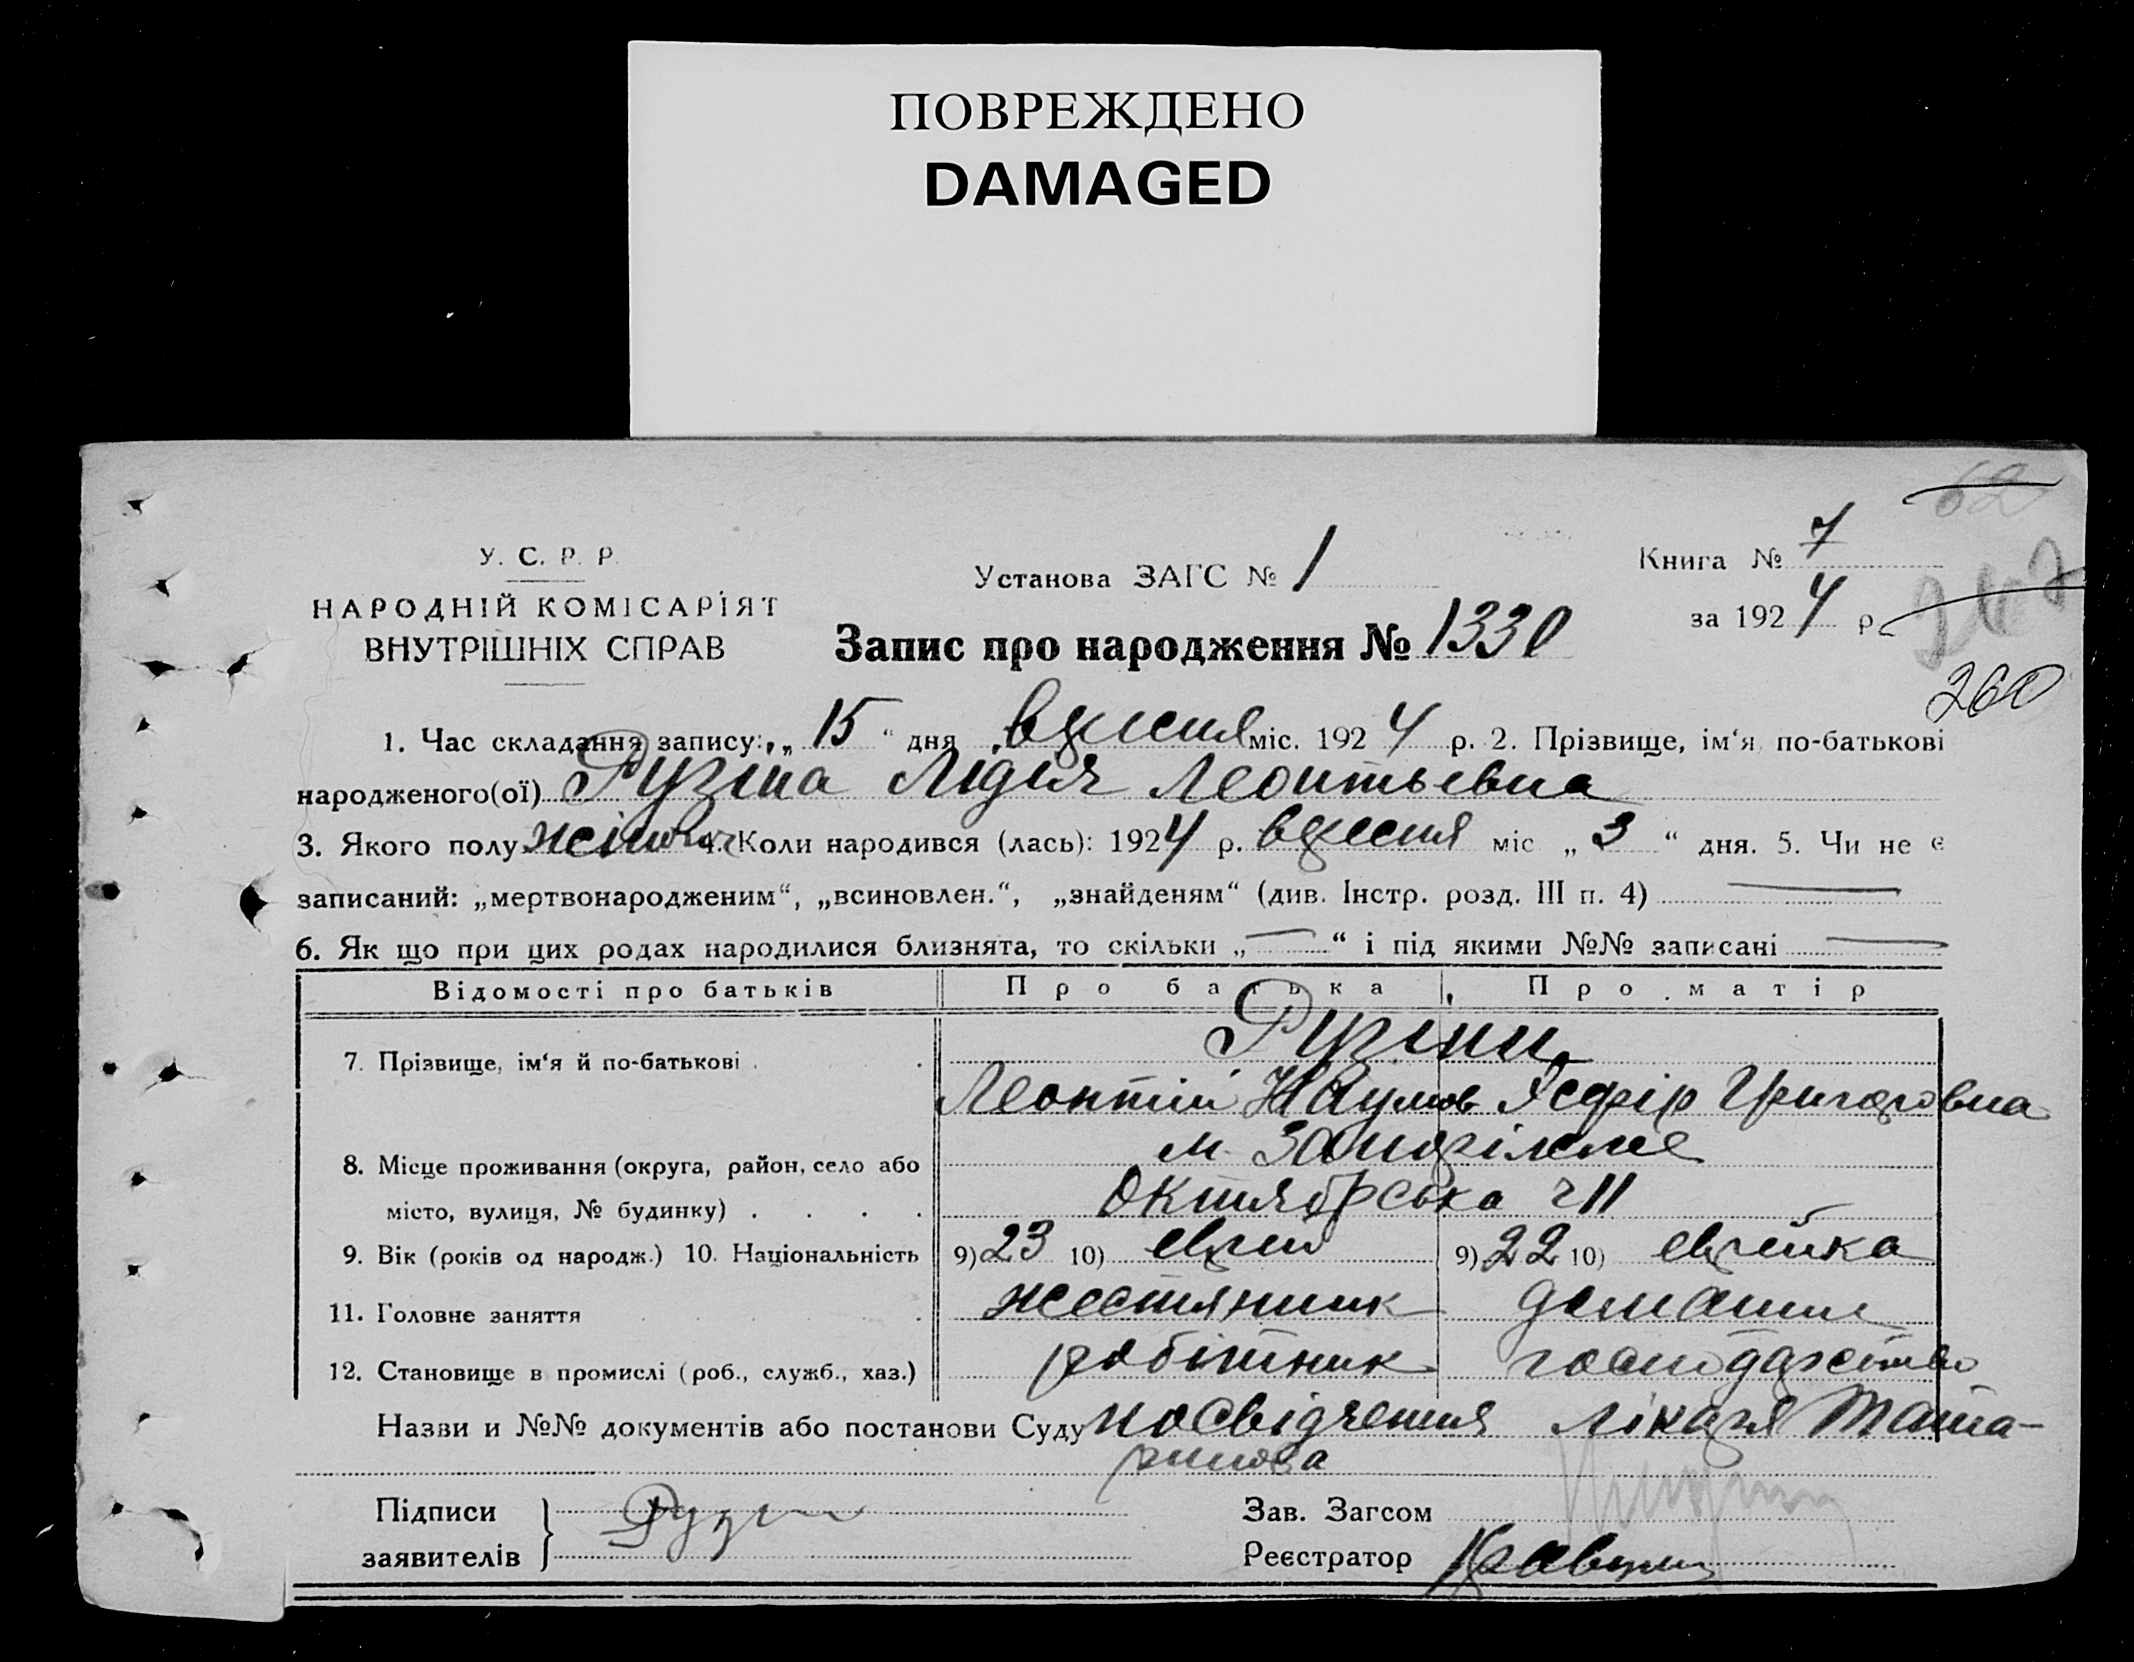 ПОВРЕЖДЕНО
DAMAGED
62
У. С. Р. Р.
НАРОДНІЙ КОМІСАРІЯТ
ВНУТРІШНІХ СПРАВ
Установа ЗАГС № 1
Книга № 7
за 1924 р.
Запис про народження № 1330
260
1. Час складання запису: „15“ дня вересня міс. 1924 р. 2. Прізвище, ім‘я, по-батькові
народженого(ої) Рузіна Лідия Леонтьевна
3. Якого полу жіноч 4. Коли народився (лась): 1924 р. вересня міс „3“ дня. 5. Чи не є
записаний: „мертвонародженим“, „всиновлен.“, „знайденям“ (див. Інстр. розд. III п. 4) —
6. Як що при цих родах народилися близнята, то скільки „—“ і під якими №№ записані —
Відомості про батьків Про батька Про матір
7. Прізвище, ім‘я й по-батькові Рузіни
Леонтій Наумов Есфір Григоровна
8. Місце проживання (округа, район, село або
місто, вулиця, № будинку) Октябрська 211
9. Вік (років од народж.) 10. Національність 9) 23 10) еврей 9) 22 10) еврейка
11. Головне заняття жестяник домашне
12. Становище в промислі (роб., служб., хаз.) робітник господарство
Назви и №№ документів або постанови Суду посвідчення лікаря Тата-
ринова
Підписи
заявителів Рузин
Зав. Загсом
Реєстратор